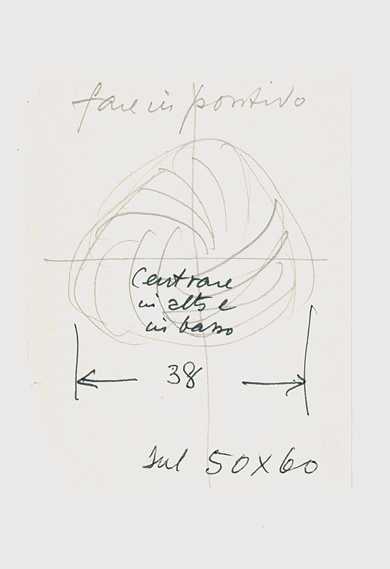 fare in positivo
Centrare
in alto e
in basso
38
sul 50x60